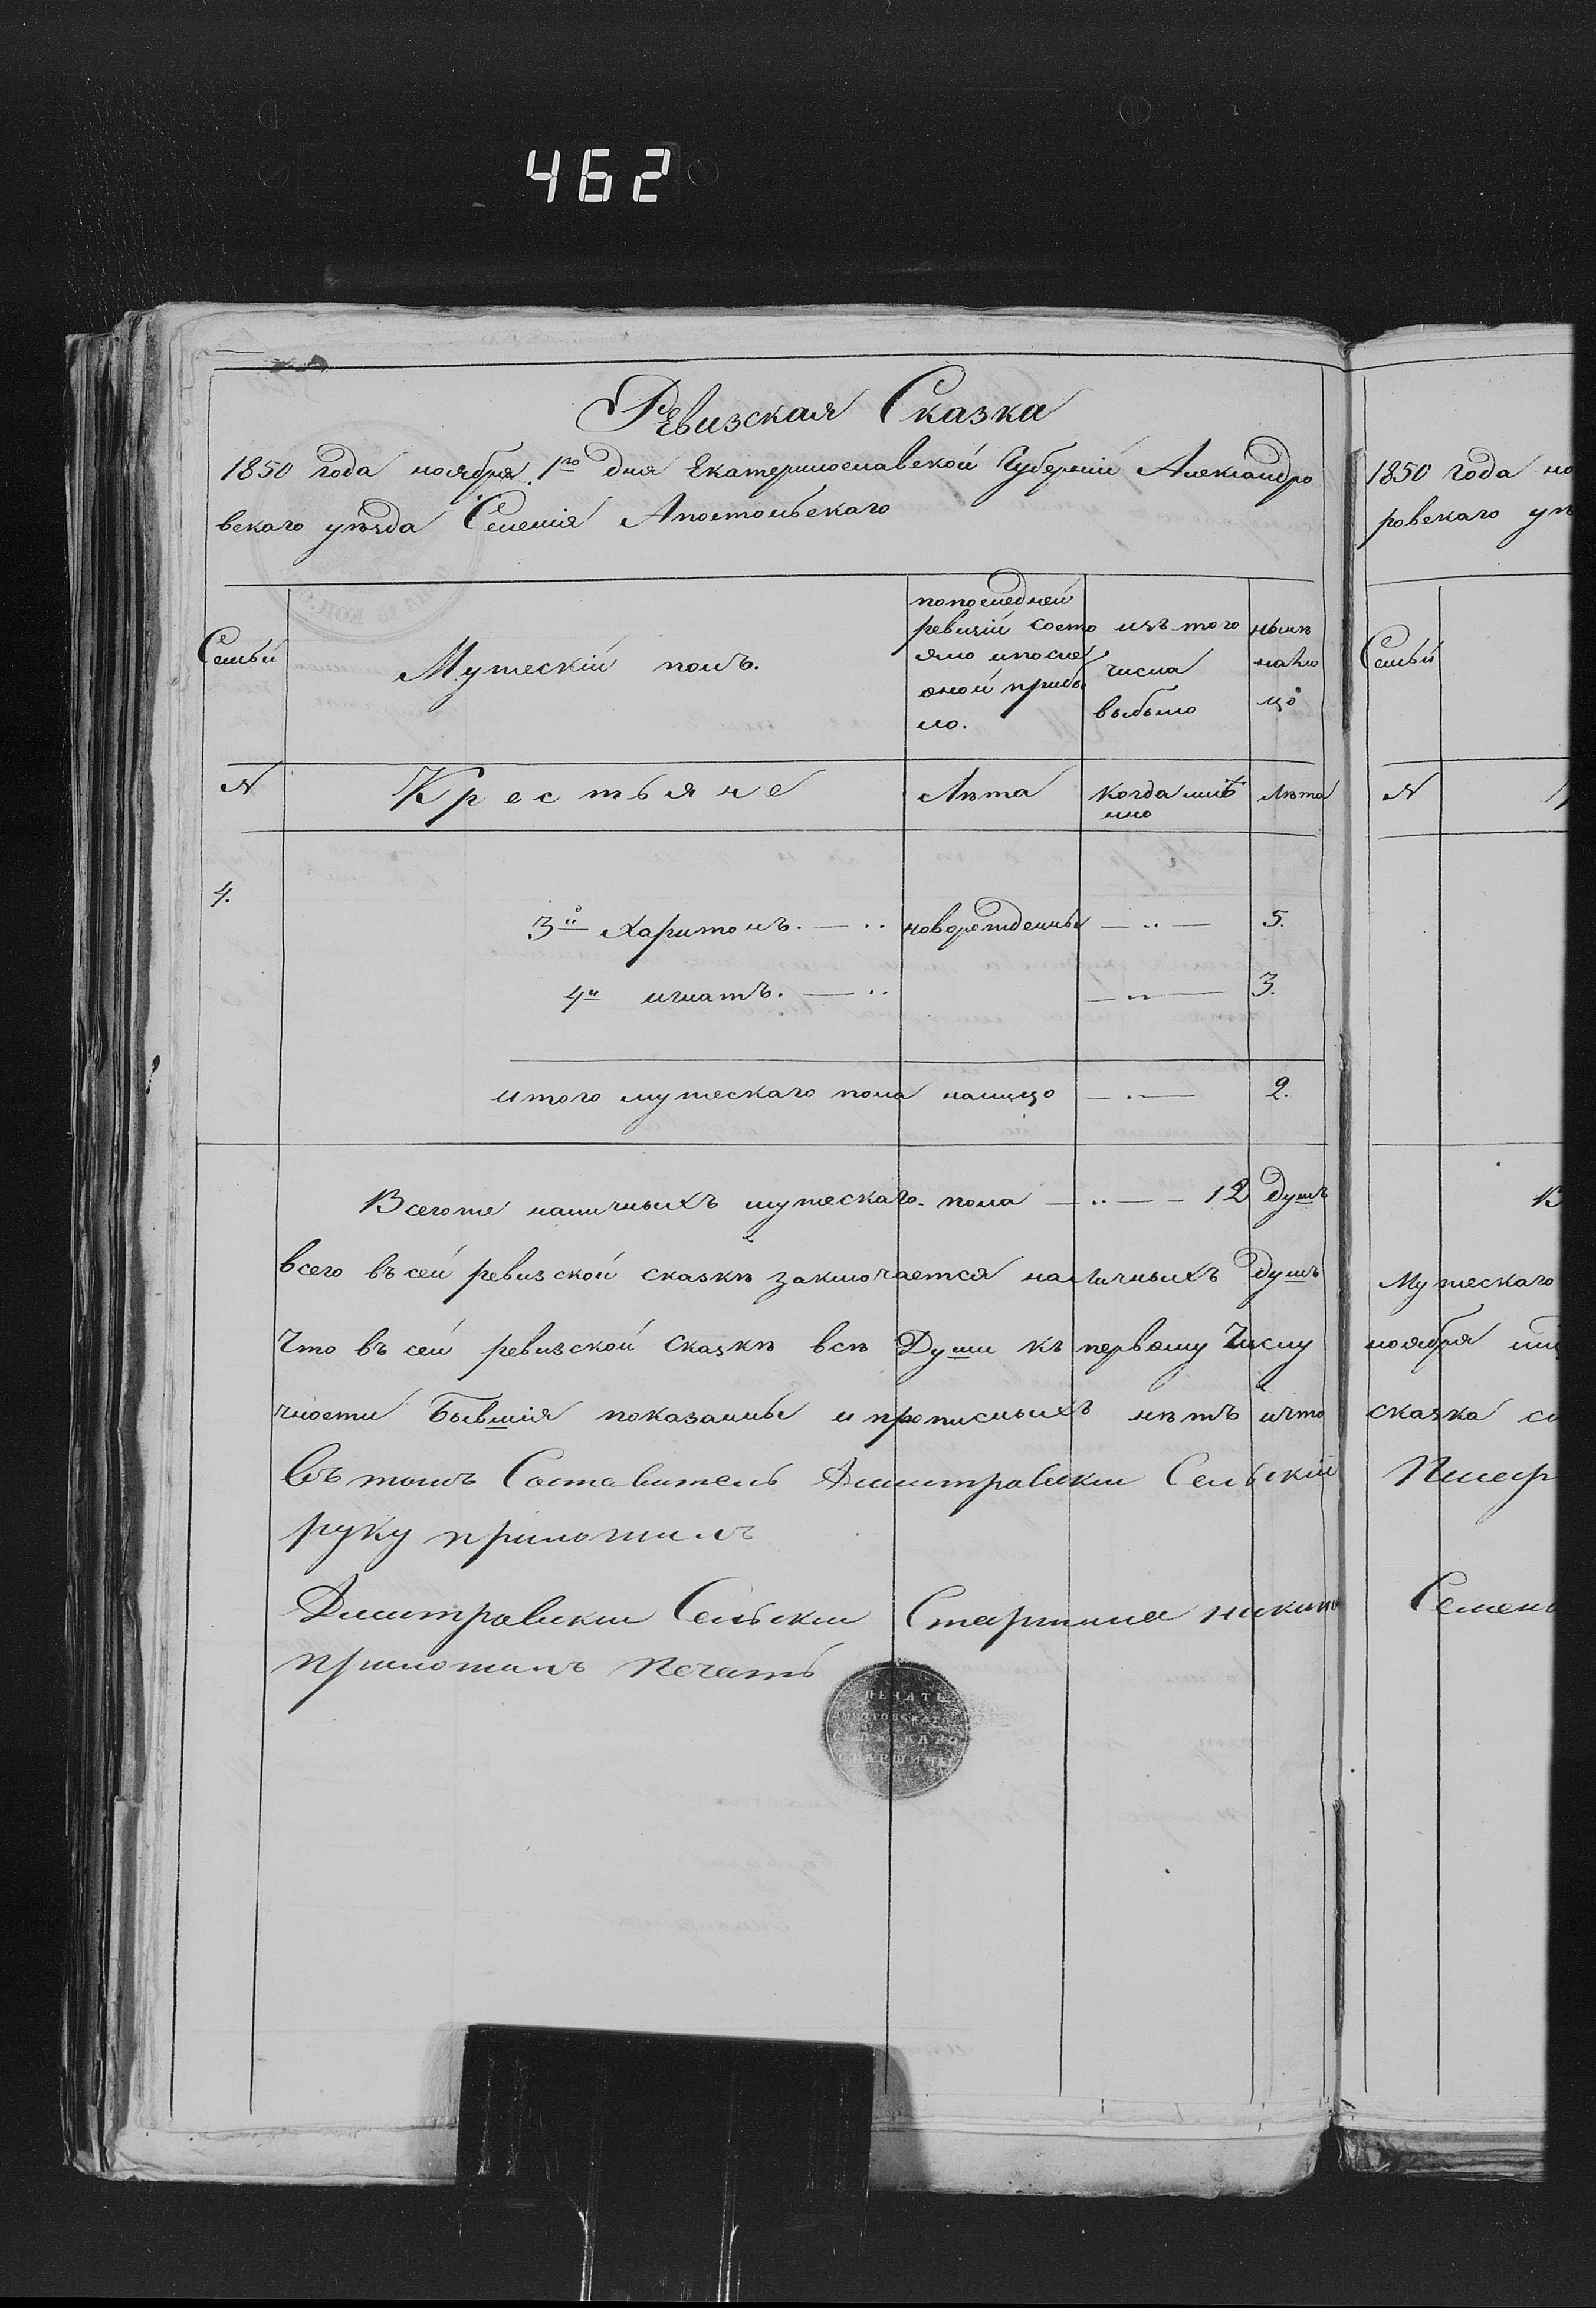 462
Ревизская Сказка
1850 года ноября 1го дня Екатеринославской Губерніи Александро
вскаго уѣзда Селенія Апостольскаго
Семьи
Мужескій полъ.
попоследней
ревизіи состо
яло ипосле
оной прибы
ло.
изъ того
числа
выбыло
нынѣ
налицо
№
Крестьяне
Лѣта
когда имѣнно
Лѣта
4.
3й Харитонъ. новорожденны 5.
4й игнатъ. 3.
итого мужескаго пола налицо 2.
Всегоже наличныхъ мужескаго пола 12 душъ
всего въ сей ревизской сказкѣ заключается наличныхъ душъ
Что въ сей ревизской сказкѣ всѣ Души къ первому Числу
чности Бывшія показанны и прописныхъ нѣтъ ичто
Въ томъ Составитель Дмитровски Сельскій
руку приложилъ
Дмитровски Сельски Старшина
приложилъ печать
ПЕЧАТЬ
ДМИТРОВСКАГО
СЕЛЬСКАГО
СТАРШИНЫ
1850 года но
ровскаго уѣ
Семьи
№
В
Мужескаго
ноября
сказка со
Писар
Семенъ